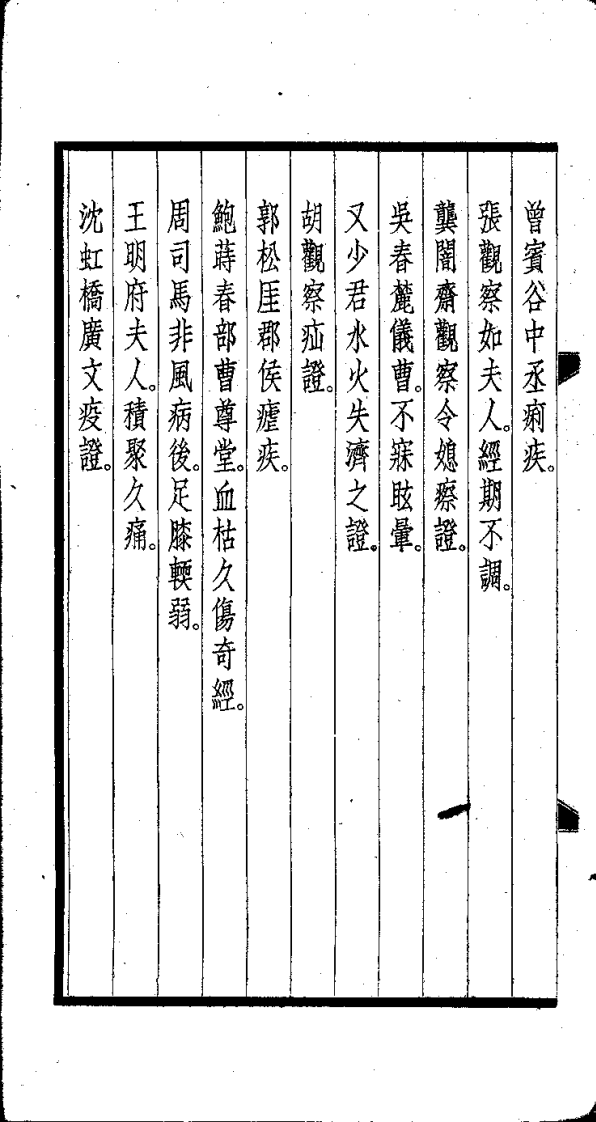 曾賓谷中丞痢疾。
張觀察如夫人。經期不調。
龔闇齋觀察令媳瘵證。
吳春麓儀曹。不寐眩暈。
又少君水火失濟之證。
胡觀察疝證。
郭松厓郡侯瘧疾。
鮑蒔春部曹尊堂。血枯久傷奇經。
周司馬非風病後。足膝輭弱。
王明府夫人。積聚久痛。
沈虹橋廣文疫證。